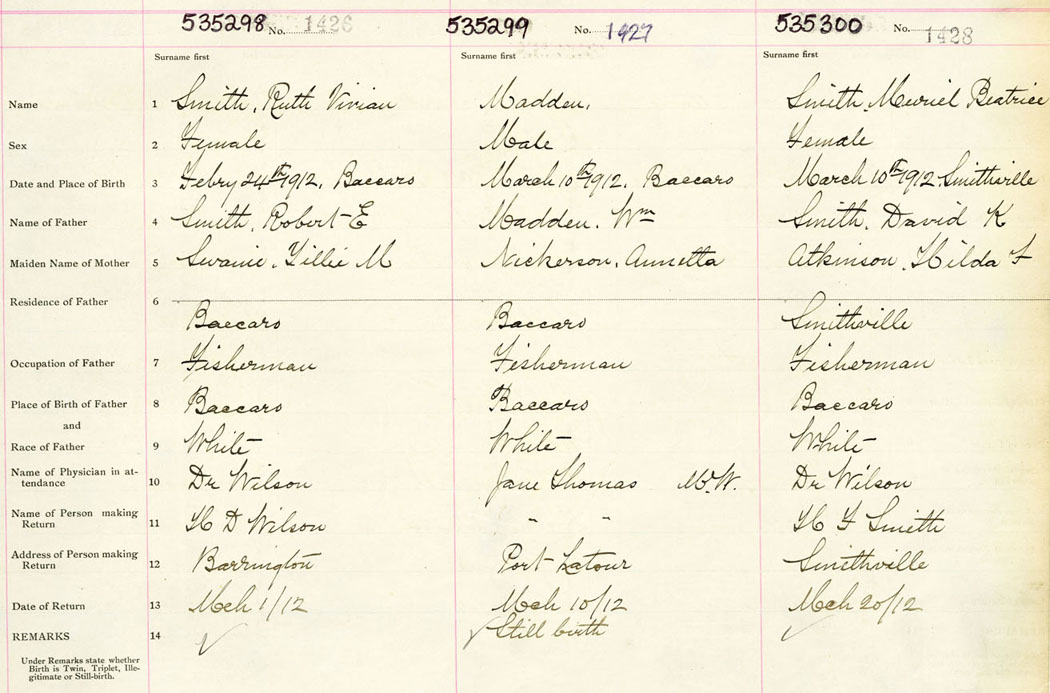 535298 No. 1426 535299 No. 1427 535300 No. 1428
Surname first Surname first Surname first
Name 1 Smith, Ruth Vivian Madden, Smith, Muriel Beatrice
Sex 2 Female Male Female
Date and Place of Birth 3 Febry 24th 1912, Baccaro March 10th 1912, Baccaro March 10th 1912. Smithville
Name of Father 4 Smith, Robert E Madden, Wm Smith, David K
Maiden Name of Mother 5 Swaine, Lillie M Nickerson, Annetta Atkinson, Hilda F
Residence of Father 6
Baccaro Baccaro Smithville
Occupation of Father 7 Fisherman Fisherman Fisherman
Place of Birth of Father 8 Baccaro Baccaro Baccaro
and
Race of Father 9 White White White
Name of Physician in at-
tendance 10 Dr Wilson Jane Thomas M.W. Dr Wilson
Name of Person making
Return 11 H D Wilson " " H F Smith
Address of Person making
Return 12 Barrington Port Latour Smithville
Date of Return 13 Mch 1/12 Mch 10/12 Mch 20/12
REMARKS 14 ✓ ✓ Still birth ✓
Under Remarks state whether
Birth is Twin, Triplet, Ille-
gitimate or Still-birth.